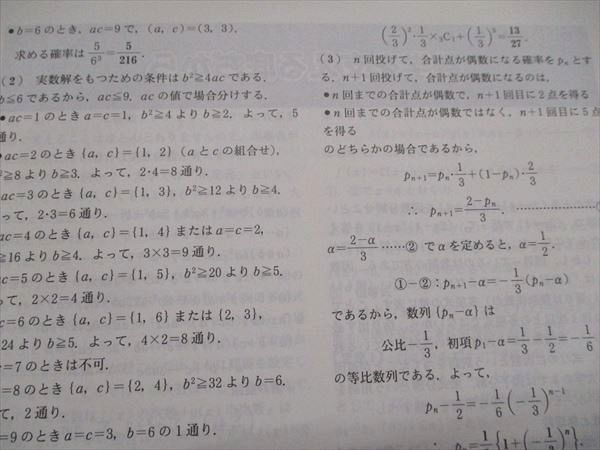 •b=6のとき, ac=9で, (a, c)=(3, 3),
求める確率は 5/6³=5/216.
(2) 実数解をもつための条件は b²≧4ac である.
b≦6 であるから, ac≦9. ac の値で場合分けする.
•ac=1のとき a=c=1, b²≧4 より b≧2. よって, 5
通り.
•ac=2のとき {a, c}={1, 2} (aとcの組合せ),
²≧8より b≧3. よって, 2·4=8 通り.
ac=3のとき {a, c}={1, 3}, b²≧12より b≧4.
って, 2·3=6 通り.
ac=4のとき {a, c}={1, 4} または a=c=2,
≧16より b≧4. よって, 3×3=9 通り.
c=5のとき {a, c}={1, 5}, b²≧20より b≧5.
って, 2×2=4 通り.
c=6のとき {a, c}={1, 6} または {2, 3},
24より b≧5. よって, 4×2=8 通り.
=7のときは不可.
=8のとき {a, c}={2, 4}, b²≧32より b=6.
て, 2通り.
=9のとき a=c=3, b=6の1通り.
(2/3)²·1/3×₃C₁+(1/3)³=13/27.
(3) n回投げて, 合計点が偶数になる確率を pₙ とす
る. n+1回投げて, 合計点が偶数になるのは,
•n回までの合計点が偶数で, n+1回目に2点を得る
•n回までの合計点が偶数ではなく, n+1回目に5点
を得る
のどちらかの場合であるから,
pₙ₊₁=pₙ·1/3+(1-pₙ)·2/3
∴ pₙ₊₁=(2-pₙ)/3. ……………………
α=(2-α)/3 ……② でαを定めると, α=1/2.
①-②: pₙ₊₁-α=-1/3(pₙ-α)
であるから, 数列{pₙ-α}は
公比-1/3, 初項 p₁-α=1/3-1/2=-1/6
の等比数列である. よって,
pₙ-1/2=-1/6(-1/3)ⁿ⁻¹
∴ pₙ=1/2{1+(-1/3)ⁿ}.